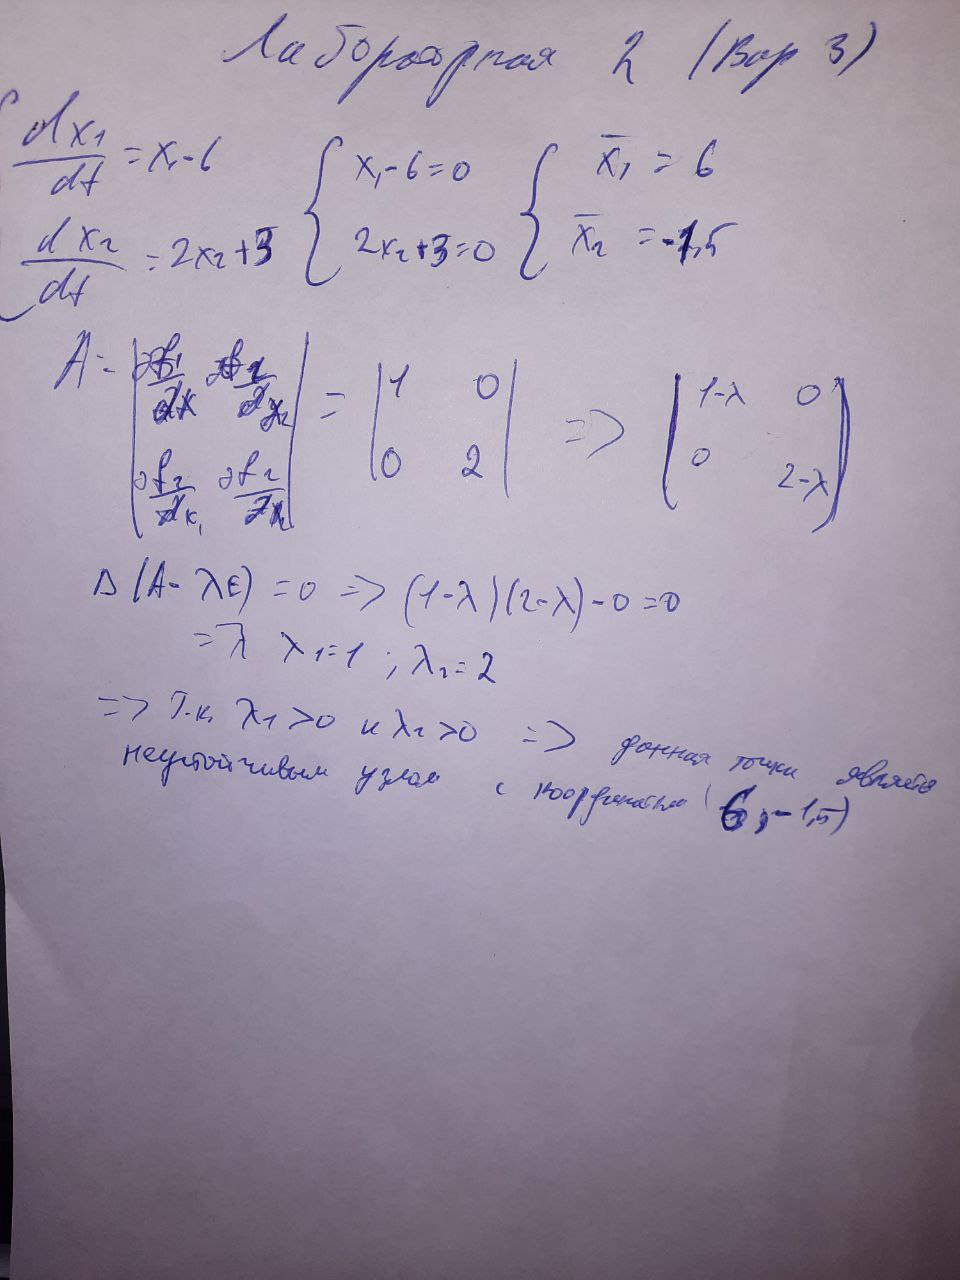 Лабораторная 2 (Вар 3)
dx₁/dt = x₁ - 6 { x₁ - 6 = 0 { x̅₁ = 6
dx₂/dt = 2x₂ + 3 2x₂ + 3 = 0 x̅₂ = -1,5
A = | ∂f₁/∂x₁ ∂f₁/∂x₂ | = | 1 0 | => ( 1-λ 0 )
| ∂f₂/∂x₁ ∂f₂/∂x₂ | | 0 2 | ( 0 2-λ )
Δ (A - λE) = 0 => (1-λ)(2-λ) - 0 = 0
=> λ₁ = 1 ; λ₂ = 2
=> Т.к. λ₁ > 0 и λ₂ > 0 => данная точка является
неустойчивым узлом с координатами (6; -1,5)